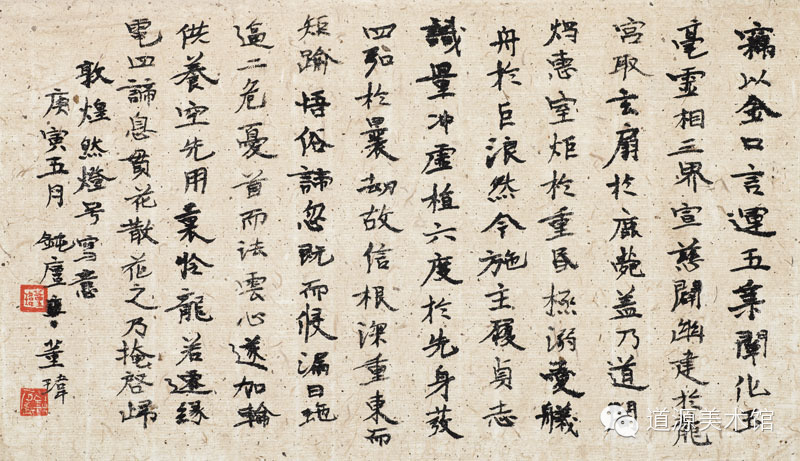 窃以金口言运五集闡化玉
毫靈相三界宣慈闢幽建於龍
宮取玄扃於鹿苑蓋乃道開
燭惠室炬於重昏極溺愛艤
舟於巨浪然今施主履貞志
識量冲虛植六度於先身發
四弘於曩劫故信根深重東而
短踰悟俗諦忽既而恨漏日地
逼二危憂首而法雲心遂加輪
供養空先用棄怜龍若速緣
電四諦息貫花散花之乃掩啓歸
敦煌然燈号寫意
庚寅五月 鈍廬 董瑋
道源美术馆